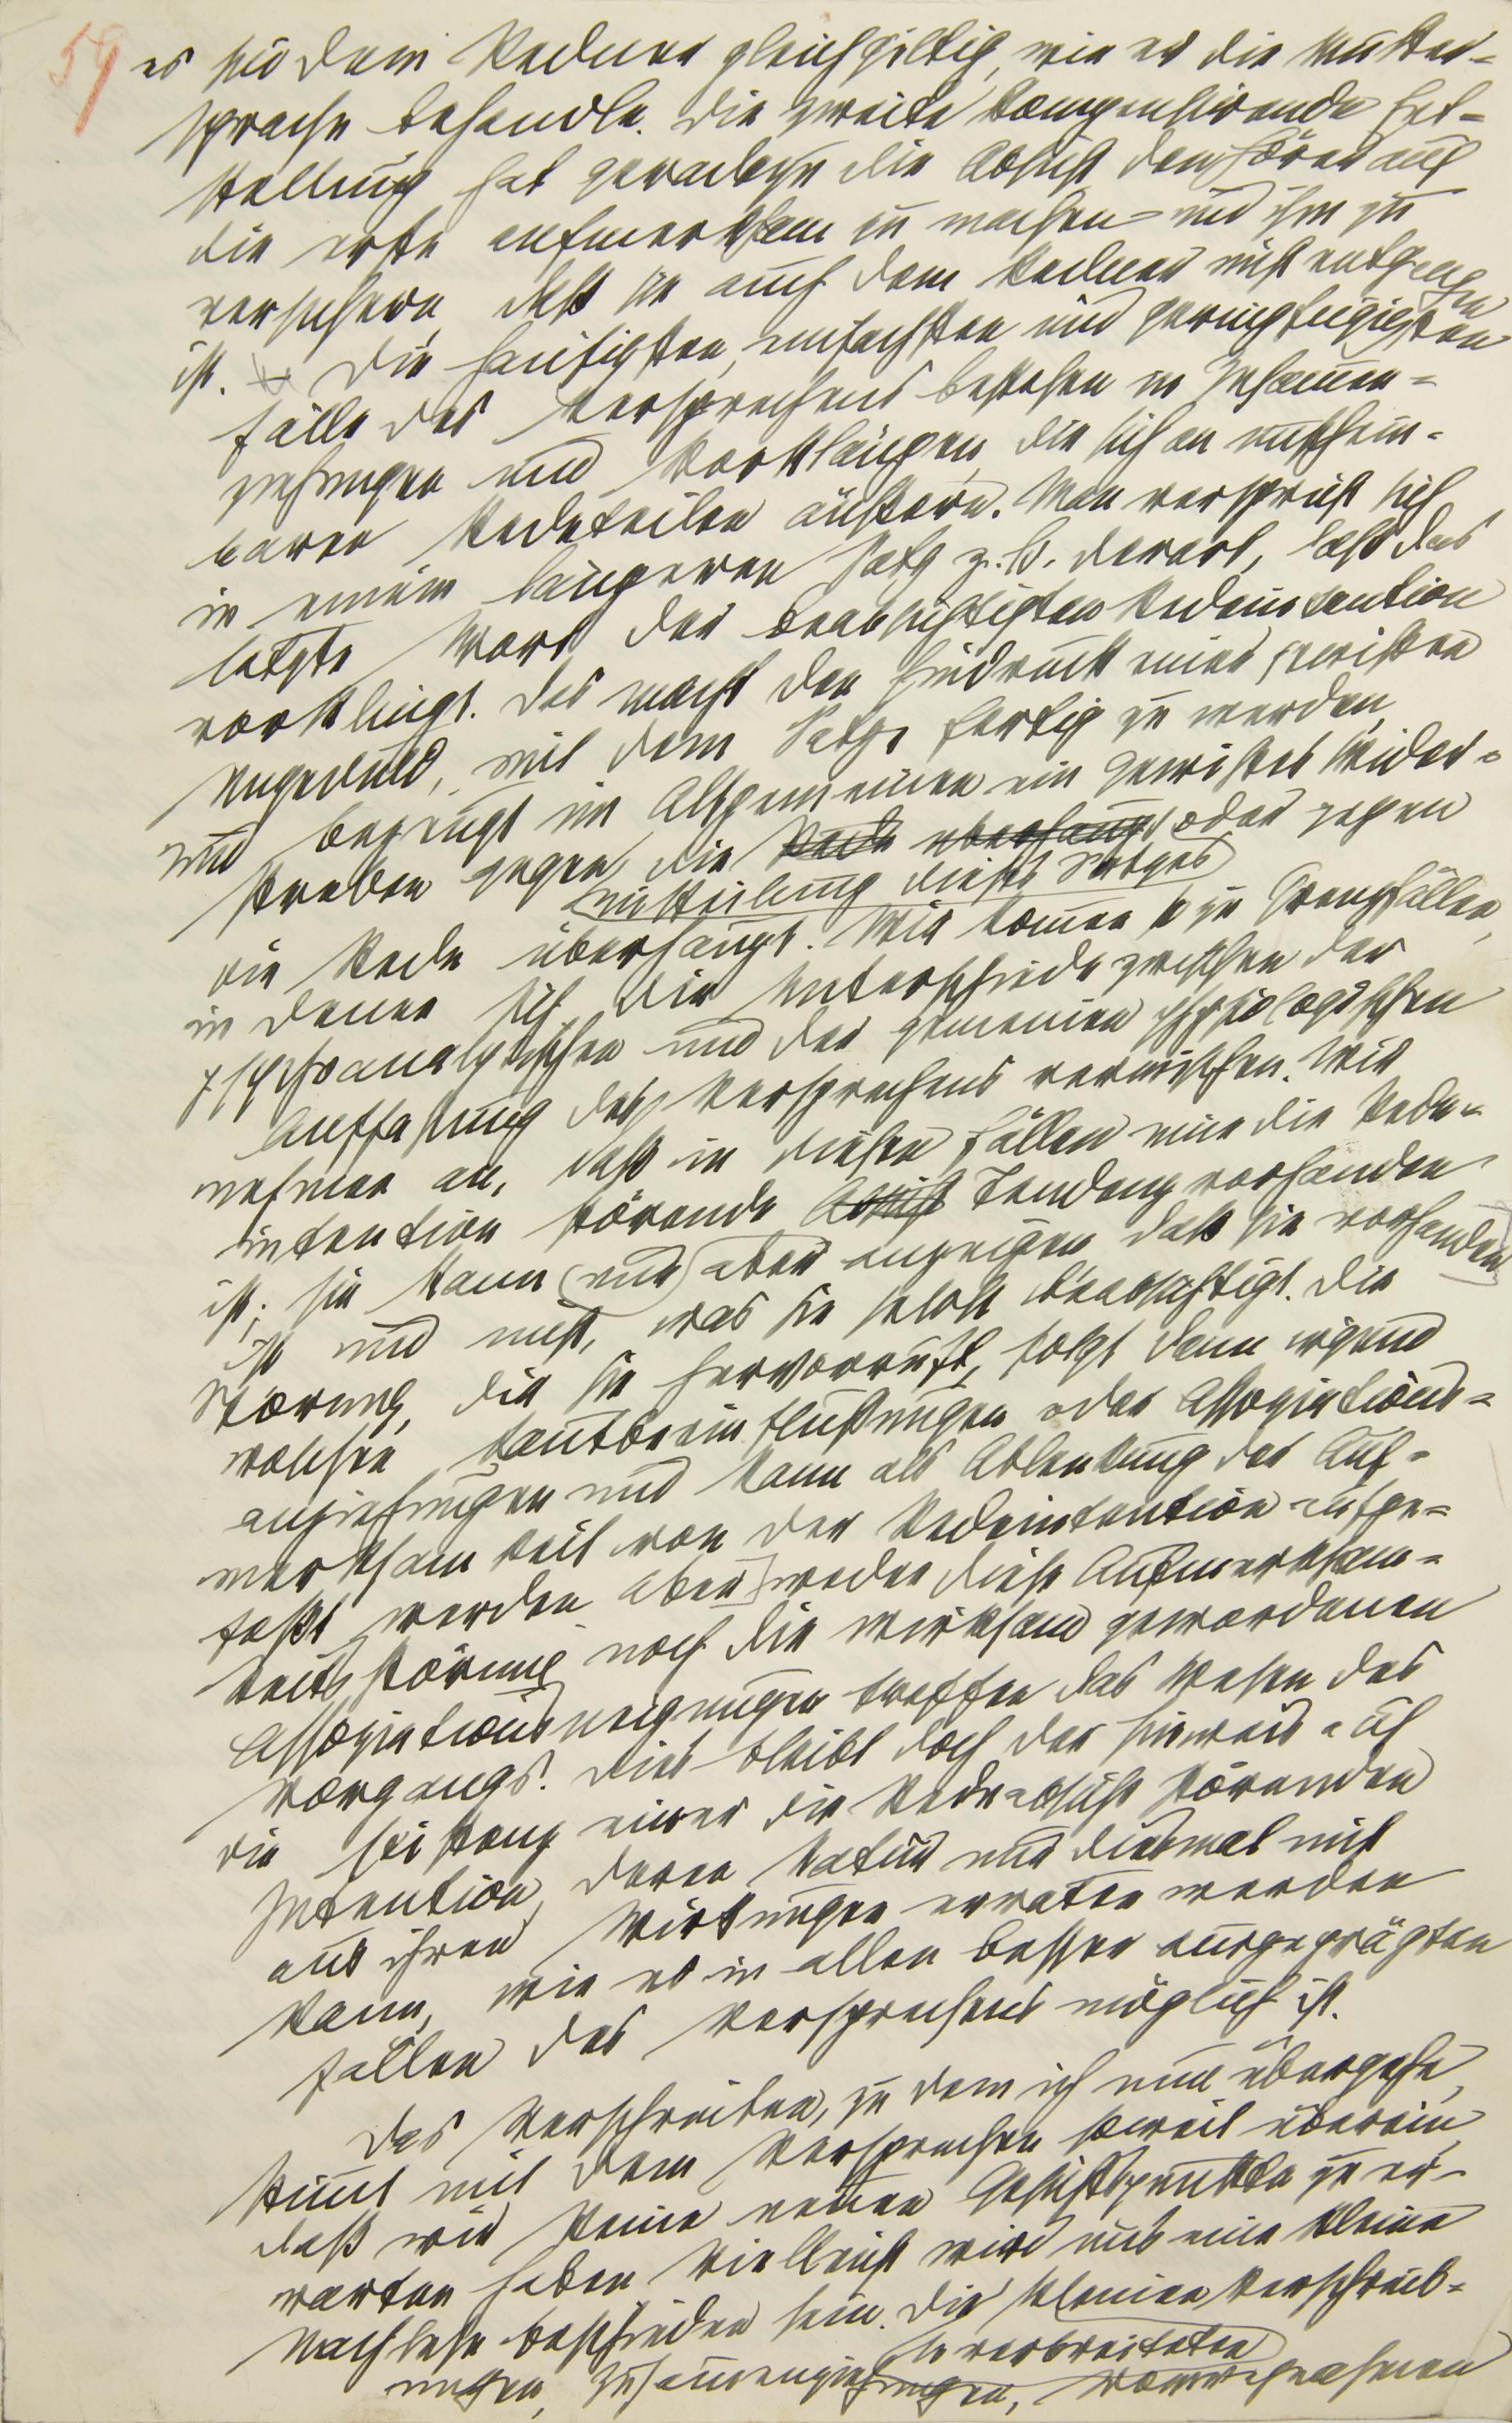 59
es sei dem Redner gleichgiltig, wie er die Mutter-
sprache behandle. Die zweite kompensirende Ent-
stellung hat geradezu die Absicht den Hörer auf
die erste aufmerksam zu machen und ihm zu
versichern, daß sie auch dem Redner nicht entgangen
ist. Die häufigsten, einfachsten und geringfügigsten
Fälle des Versprechens bestehen in Zusammen-
ziehungen und Vorklängen, die sich an unschein-
baren Redeteilen äußern. Man verspricht sich
in einem längeren Satz z. B. derart, daß das
letzte Wort der beabsichtigten Redeintention
vorklingt. Das macht den Eindruck einer gewissen
Ungeduld, mit dem Satze fertig zu werden,
und bezeugt im Allgemeinen ein gewisses Wider-
streben gegen die Rede überhaupt oder gegen
Mitteilung dieses Satzes
die Rede überhaupt. Wir kommen so zu Grenzfällen,
in denen sich die Unterschiede zwischen der
psychoanalytischen und der gemeinen physiologischen
Auffassung des Versprechens vermischen. Wir
nehmen an, daß in diesen Fällen eine die Rede-
intention störende Absicht Tendenz vorhanden
ist; sie kann nur aber anzeigen, daß sie vorhanden
ist und nicht, was sie selbst beabsichtigt. Die
Störung, die sie hervorruft, folgt dann irgend
welchen Lautbeeinflußungen oder Assoziations-
anziehungen und kann als Ablenkung der Auf-
merksamkeit von der Redeintention aufge-
faßt werden. Aber weder diese Aufmerksam-
keitsstörung noch die wirksam gewordenen
Assoziationsneigungen treffen das Wesen des
Vorgangs. Dies bleibt doch der Hinweis auf
die Existenz einer die Redeabsicht störenden
Intention, deren Natur nur diesmal nicht
aus ihren Wirkungen erraten werden
kann, wie es in allen besser ausgeprägten
Fällen des Versprechens möglich ist.
Das Verschreiben, zu dem ich nun übergehe,
stimmt mit dem Versprechen soweit überein,
daß wir keine neuen Gesichtspunkte zu er-
warten haben. Vielleicht wird uns eine kleine
Nachlese beschieden sein. Die kleinen Verschreib-
so verbreiteten
ungen, Zusammenziehungen, Vorwegnahmen